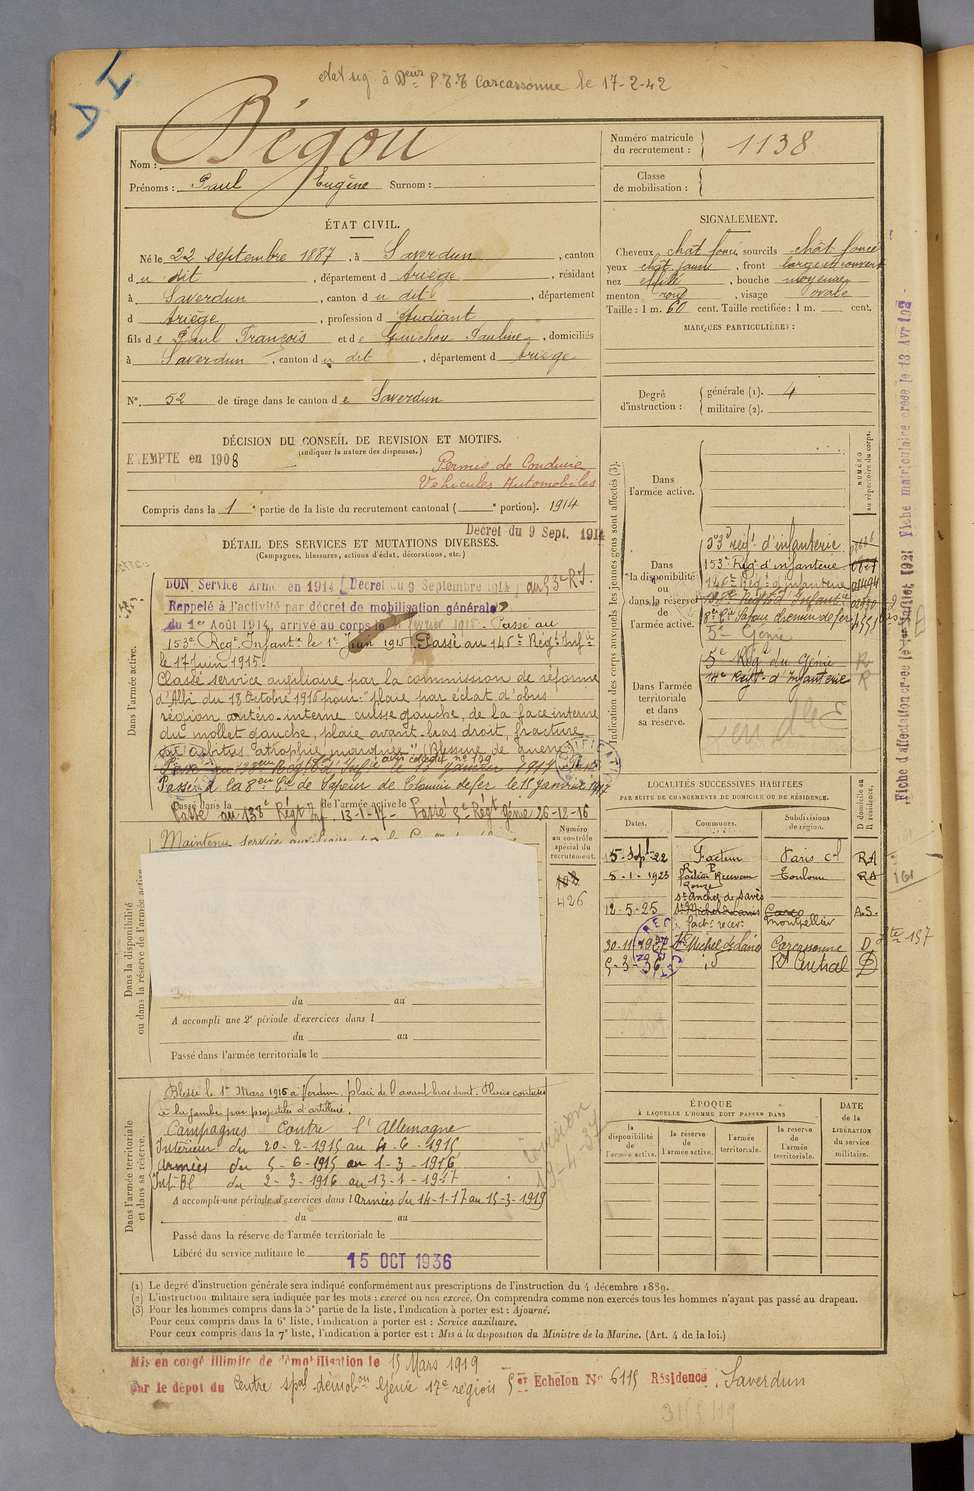 à D^eur P.T.T. Carcassonne le 17-2-42
Nom : Bégou
Prénoms : Paul Eugène Surnom :
Numéro matricule du recrutement : 1138
Classe de mobilisation :
ÉTAT CIVIL.
Né le 22 septembre 1887, à Saverdun, canton
du dit, département d Ariège, résidant
à Saverdun, canton du dit, département
d Ariège, profession d étudiant
fils de Paul François et de Guichou Pauline, domiciliés
à Saverdun, canton du dit, département d Ariège
N°. 52 de tirage dans le canton de Saverdun
SIGNALEMENT.
Cheveux chât foncé, sourcils chât foncé
yeux chât jaune, front large découvert
nez effilé, bouche moyenne
menton rond, visage ovale
Taille : 1 m. 60 cent. Taille rectifiée : 1 m. cent.
MARQUES PARTICULIÈRES :
Degré d'instruction :
générale (1). 4
militaire (2).
DÉCISION DU CONSEIL DE REVISION ET MOTIFS.
(Indiquer la nature des dispenses.)
EXEMPTE en 1908
Permis de Conduire
Véhicules Automobiles
Compris dans la 1^e partie de la liste du recrutement cantonal ( ^e portion). 1914
Décret du 9 Sept. 1914
DÉTAIL DES SERVICES ET MUTATIONS DIVERSES.
(Campagnes, blessures, actions d'éclat, décorations, etc.)
Dans l'armée active.
BON Service Armé en 1914 (Décret du 9 Septembre 1914) au 53^e R.I.
Rappelé à l'activité par décret de mobilisation générale
du 1^er Août 1914, arrivé au corps le février 1915. Passé au
153^e Rég^t Infant^ie le 1^er Juin 1915 Passé au 146^e Rég^t Inf^ie
le 17 Juin 1915.
Classé service auxiliaire par la commission de réforme
d'Albi du 18 Octobre 1916 pour: "plaie par éclat d'obus
région antéro-interne cuisse gauche, de la face interne
du mollet gauche, plaie avant-bras droit, fracture
du cubitus atrophie marquée". Blessure de Guerre
Passé à la 8^eme C^ie de Sapeur de Chemin de fer le 15 Janvier 1917
Passé dans la de l'armée active le
Passé au 138^e Rég^t Inf. 13-1-17- Passé 5^e Rég^t Génie 26-12-16
Maintenu service auxiliaire
Numéro au contrôle spécial du recrutement.
108
426
Dans la disponibilité ou dans la réserve de l'armée active
du au
A accompli une 2^e période d'exercices dans l
du au
Passé dans l'armée territoriale le
Dans l'armée territoriale et dans sa réserve.
Blessé le 1^er Mars 1916 à Verdun, plaie de l'avant bras droit. Plaies contuses
à la jambe par projectiles d'artillerie.
Campagnes Contre l'Allemagne
Intérieur du 20-2-1915 au 4-6-1915
Armées du 5-6-1915 au 1-3-1916
Int-Bl du 2-3-1916 au 13-1-1917
A accompli une période d'exercices dans l armées du 14-1-17 au 15-3-1919
du au
Passé dans la réserve de l'armée territoriale le
Libéré du service militaire le 15 OCT 1936
Indication des corps auxquels les jeunes gens sont affectés (3).
NUMÉRO au répertoire du corps.
Dans l'armée active.
Dans la disponibilité ou dans la réserve de l'armée active.
53^e rég^t d'infanterie
153^e Rég^t d'infanterie
146^e Rég^t d'infanterie
138^e Rég^t d'Infant^ie
8^e C^ie Sapeur chemin de fer
5^e Génie
Dans l'armée territoriale et dans sa réserve.
5^e Rég^t du Génie R
14^e Rég^t d'Infanterie R
LOCALITÉS SUCCESSIVES HABITÉES
PAR SUITE DE CHANGEMENTS DE DOMICILE OU DE RÉSIDENCE.
Dates. Communes. Subdivisions de région. D domicile ou R résidence.
5-Sep^t-22 Facteur Paris c^al RA
5-1-1923 facteur Receveur Toulouse RA
12-5-25 S^te Michel de Lanès Montpellier A.S.
fact^r recev^r
30-11-1927 S^te Michel de Lanès Carcassonne D
5-3-36 id B^t Central D
ÉPOQUE
À LAQUELLE L'HOMME DOIT PASSER DANS
la disponibilité de l'armée active. la réserve de l'armée active. l'armée territoriale. la réserve de l'armée territoriale.
DATE de la LIBÉRATION du service militaire.
(1) Le degré d'instruction générale sera indiqué conformément aux prescriptions de l'instruction du 4 décembre 1889.
(2) L'instruction militaire sera indiquée par les mots : exercé ou non exercé. On comprendra comme non exercés tous les hommes n'ayant pas passé au drapeau.
(3) Pour les hommes compris dans la 5^e partie de la liste, l'indication à porter est : Ajourné.
Pour ceux compris dans la 6^e liste, l'indication à porter est : Service auxiliaire.
Pour ceux compris dans la 7^e liste, l'indication à porter est : Mis à la disposition du Ministre de la Marine. (Art. 4 de la loi.)
Mis en congé illimité de démobilisation le 15 Mars 1919
par le dépôt du Centre sp^al démob^on Génie 17^e région 5^er Echelon N° 6115 Résidence Saverdun